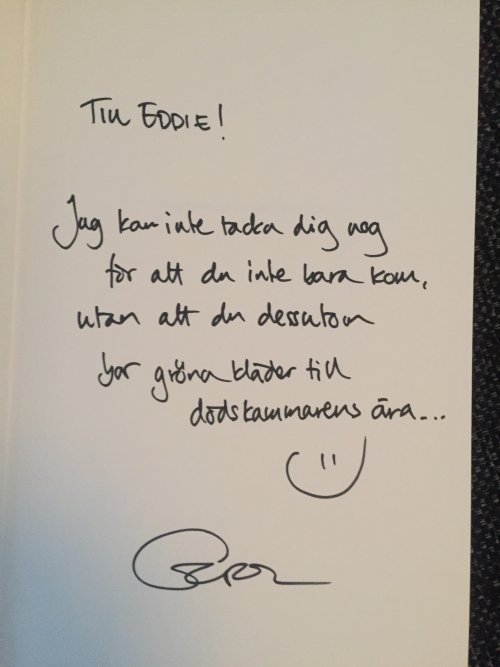 TILL EDDIE!
Jag kan inte tacka dig nog
för att du inte bara kom,
utan att du dessutom
bar gröna kläder till
dödskammarens ära...